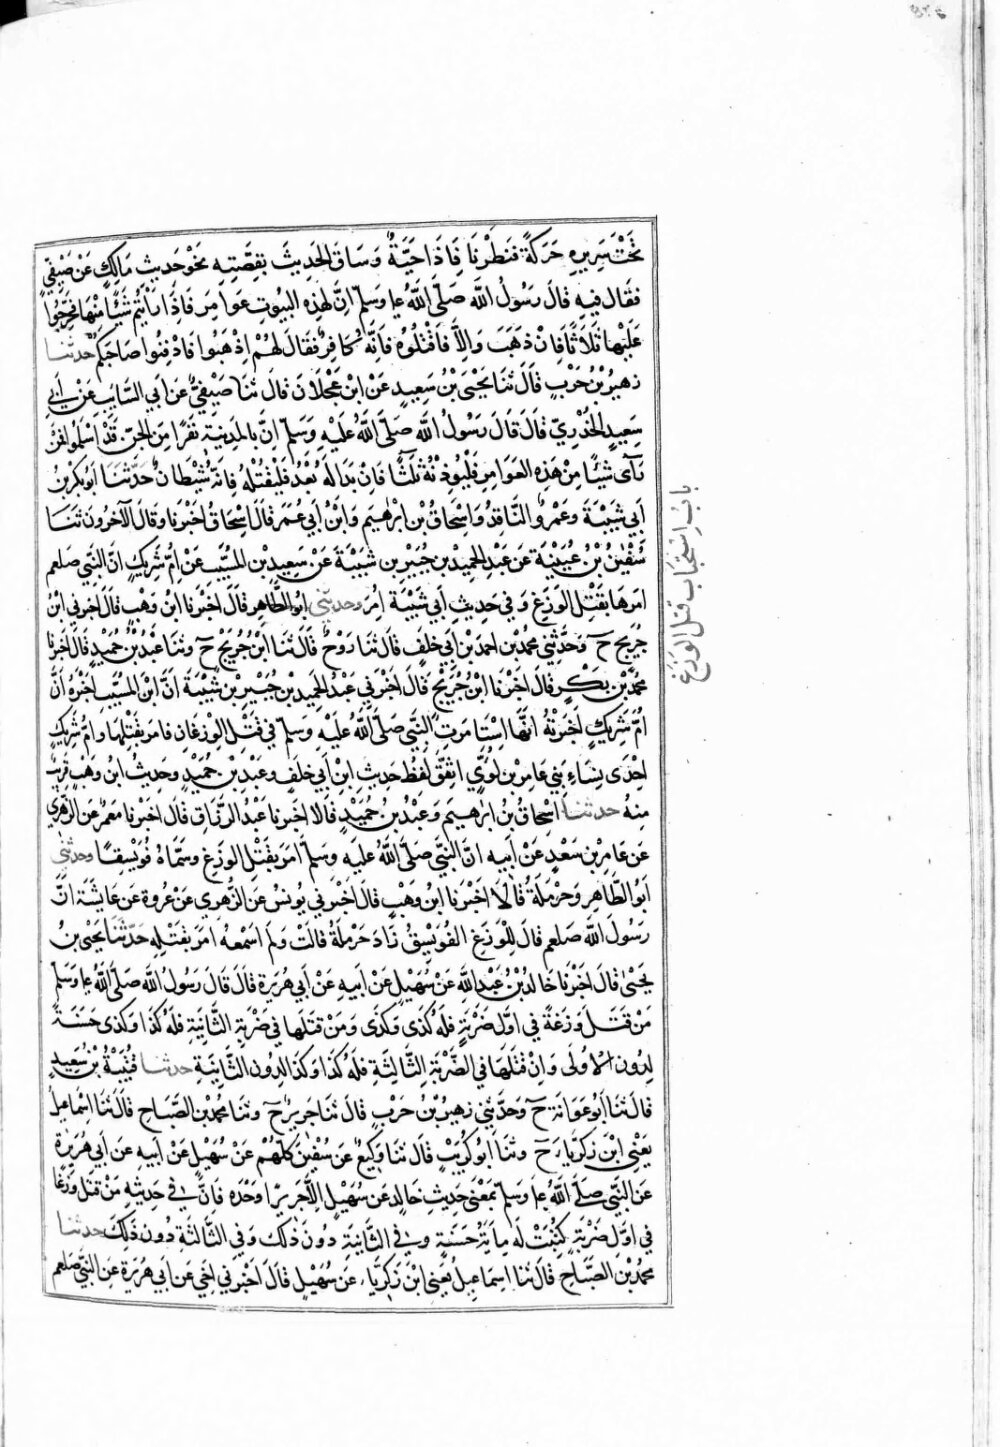 تَحْتَ سَرِيرِهِ حَرَكَةً فَنَظَرْنَا فَاِذَا حَيَّةٌ وَسَاقَ الحَدِيثَ بِقِصَّتِهِ نَحْوَ حَدِيثِ مَالِكٍ عَنْ صَيْفِيٍّ
فقَالَ فِيهِ قالَ رَسُولُ اللّٰه صَلَّى اللّٰهُ علىه وَسَلَّمَ اِنَّ لِهٰذِهِ البُيُوتِ عَوَامِرَ فَاِذَا رَاَيْتُمْ شَيْئًا مِنْهَا فَحَرِّجُوا
عَلَيْهَا ثَلَاثًا فَاِنْ ذَهَبَ وَاِلَّا فَاقْتُلُوهُ فَاِنَّهُ كَافِرٌ فَقَالَ لَهُمْ اِذْهَبُوا فَادْفِنُوا صَاحِبَكُمْ حدثنا
زهيرُ بْنُ حَرْبٍ قَالَ ثنا يَحْيَى بْنُ سَعِيدٍ عَنْ ابْنِ عَجْلَانَ قَالَ ثنا صَيْفِيٌّ عَنْ اَبِي السَّايِبِ عَنْ اَبِي
سَعِيدٍ الخُدْرِيّ قَالَ قَالَ رَسُولُ اللّٰه صَلَّى اللّٰهُ عَلَيْهِ وَسَلَّم اِنَّ بِالمَدِينَةِ نَفَرًا مِنَ الجِنِّ قَدْ اَسْلَمُوا فمَنْ
رَآى شَيْئًا مِنْ هٰذِهِ العَوَامِرِ فَلْيُوذِنْهُ ثَلٰثًا فَاِنْ بَدَا لَهُ بَعْدُ فَلْيَقْتُلْهُ فَاِنَّهُ شَيْطَانٌ حَدَّثَنَا اَبُو بَكْرِ بْنُ
اَبِي شَيْبَةَ وَعَمْرٌو النَّاقِدُ وَاِسْحَاقُ بْنِ اِبْرٰهِيمَ وَابْنُ اَبِي عُمَرَ قَالَ اِسْحَاقُ اَخْبَرَنَا وَقَالَ الآخَرُونَ ثَنَا
سُفْيٰنُ بْنُ عُيَيْنَةَ عَن عَبْدِ الحَمِيدِ بْنِ جُبَيْرِ بنِ شَيْبَةَ عَنْ سَعِيدِ بْنِ المُسَيَّبِ عَنْ اُمِّ شَرِيكٍ اَنَّ النَّبِيَّ صلعم
امَرَهَا بِقَتْلِ الوَزَغِ وَفِي حَدِيثِ اَبِي شَيْبَةَ اَمَرَ وحدثني اَبُو الطَّاهِرِ قَالَ اَخْبَرَنَا ابْنُ وَهْبٍ قَالَ اخبرني ابْنُ
جُرَيْجٍ ح وَحَدَّثَنِي محمدُ بْنِ احمدَ بْنِ اَبِي خلفٍ قَالَ ثنا رَوْحٌ قَالَ ثنَا ابْنُ جُرَيْجٍ ح وثنا عَبْدُ بْنُ حُمَيْدٍ قَالَ اَخبرنا
محمَّدُ بْنُ بَكْرٍ قَالَ اَخْبَرَنَا ابْنُ جُرَيْجٍ قَالَ اَخْبَرَنِي عَبْدُ الحَمِيدِ بْنِ جُبَيْرِ بْنِ شَيْبَةَ اَنَّ ابْنَ المُسَيَّبِ اَخْبَرَهُ اَنَّ
اُمَّ شَرِيكٍ اَخْبَرَتْهُ اَنَّهَا اسْتَامَرَتِ النَّبِيَّ صَلَّى اللّٰهُ عَلَيْهِ وَسَلَّم فِي قَتْلِ الوِزْغَانِ فَامَرَ بِقَتْلِهَا وَامُّ شَرِيكٍ
اِحْدَى نِسَاءِ بَنِي عَامِرِ بْنِ لُوَيٍّ اتَّفَقَ لَفْظُ حَدِيثِ ابْنِ اَبِي خَلَفٍ وَعَبْدِ بْنِ حُمَيْدٍ وَحَدِيثُ ابْنِ وَهْبٍ قَرِيبٌ
مِنْهُ حدثنا اِسْحَاقُ بْنُ ابْرٰهِيمَ وَعَبْدُ بنُ حُمَيْدٍ قَالَا اَخبَرَنا عَبْدُ الرَّزَاقِ قَالَ اَخبَرَنا مَعْمَرٌ عَنِ الزُّهْرِي
عَن عَامِرِ بْنِ سَعْدٍ عَنْ اَبِيهِ انَّ النَّبِيَّ صَلَّى اللّٰهُ عَلَيهِ وَسَلَّمَ اَمَرَ بِقَتْلِ الوَزَغِ وَسَمَّاهُ فُوَيْسِقًا وحدثني
اَبُو الطَّاهِرِ وَحَرْمَلَةُ قَالَا اَخْبَرَنَا ابْنُ وَهْبٍ قَالَ اَخْبَرَنِي يُونُسُ عَنِ الزُّهْرِي عَنْ عُرْوَةَ عَنْ عَايشَةَ اَنَّ
رَسُولَ اللّٰه صلعم قَالَ لِلْوَزَغِ الفُوَيْسِقُ زَادَ حَرْمَلَةُ قَالَتْ وَلَم اَسْمَعْهُ اَمَرَ بِقَتْلِهِ حَدَّثَنَا يَحْيَى بْنُ
يَحْيٰى قَالَ اَخْبَرَنَا خَالِدُ بْنُ عَبْدِ اللّٰهِ عَنْ سُهَيْلٍ عَنْ اَبِيهِ عَنْ اَبِي هُرَيْرَةَ قَالَ قَالَ رَسُولُ اللّٰه صَلَّى اللّٰهُ علىه وَسَلَّم
مَنْ قَتَلَ وَزَغَةً فِي اَوَّلِ ضَرْبَةٍ فَلَهُ كَذَى وَكَذَى وَمَنْ قَتَلَهَا فِي ضَرْبَةِ الثَّانِيَةِ فَلَهُ كَذَا وَكَذَى حَسَنَةً
لِدُونِ الاُولَى وَاِنْ قَتَلَهَا فِي الضَّرْبَةِ الثَّالِثَةِ فلَهُ كَذَا وَكَذَا لِدُونِ الثَّانِيَةِ حدثنا قُتَيْبَةُ بْنُ سَعِيدٍ
قَالَ ثَنَا اَبُو عَوَانَةَ ح وَحَدَّثَنِي زهيرُ بْنُ حَرْبٍ قَالَ ثَنَا جَرِيرٌ ح وثنا محمدُ بْنُ الصَّبَاحِ قَالَ ثَنَا اِسْمَاعِيلُ
يَعْنِي ابْنَ زَكَرِيَّاءَ ح وثنَا اَبُو كُرَيْبٍ قَالَ ثنا وَكِيعٌ عَنْ سُفْيٰنَ كُلُّهُمْ عَنْ سُهَيْلٍ عَنْ اَبِيهِ عَن اَبِي هُرَيْرَةَ
عَنِ النَّبِيّ صَلَّى اللّٰهُ علىه وَسَلَّم بِمَعْنَى حَدِيثِ خَالِدٍ عَن سُهَيْلٍ اِلَّا جَرِيرًا وَحْدَهُ فَاِنَّ فِي حَدِيثِهِ مَنْ قَتَلَ وَزَغًا
فِي اَوَّلِ ضَرْبَةٍ كُتِبَتْ لَهُ مِايَةُ حَسَنَةٍ وَفِي الثَّانِيَةِ دُونَ ذٰلِكَ وَفِي الثَّالِثَةِ دُونَ ذَلِكَ حدثنا
محمدُ بْنُ الصَّبَاحِ قَالَ ثنا اِسْمَاعِيلُ يَعْنِي ابْنَ زَكَرِيَّاءَ عَنْ سُهَيْلٍ قَالَ اَخْبَرَنِي اَخِي عَنْ اَبِي هُرَيْرَةَ عَنِ النَّبِيّ صلعم
بابُ اسْتِحْبَابِ قَتْلِ الوَزَغِ